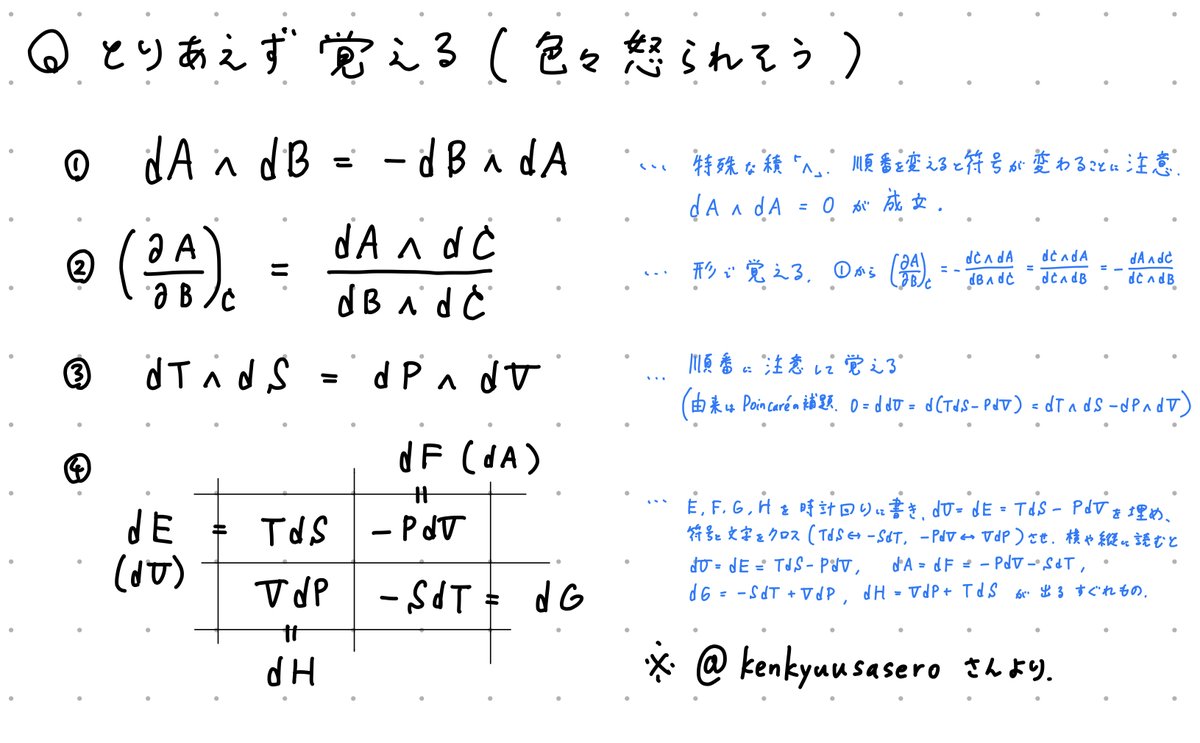 Q とりあえず 覚える ( 色々 怒られそう )
① dA ∧ dB = -dB ∧ dA
… 特殊な積「∧」. 順番を変えると符号が変わることに注意.
dA ∧ dA = 0 が 成立.
② (∂A/∂B)_C = (dA ∧ dC)/(dB ∧ dC)
… 形で覚える. ①から (∂A/∂B)_C = -(dC∧dA)/(dB∧dC) = (dC∧dA)/(dC∧dB) = -(dA∧dC)/(dC∧dB)
③ dT ∧ dS = dP ∧ dV
… 順番に注意して覚える
(由来は Poincaréの補題. 0 = ddU = d(TdS-PdV) = dT∧dS-dP∧dV)
④
dF (dA)
=
dE = TdS -PdV
(dU)
VdP -SdT = dG
=
dH
… E, F, G, H を時計回りに書き, dU = dE = TdS - PdV を埋め,
符号と文字をクロス (TdS ↔ -SdT, -PdV ↔ VdP) させ. 横や縦に読むと
dU = dE = TdS-PdV, dA = dF = -PdV-SdT,
dG = -SdT + VdP, dH = VdP + TdS が 出る すぐれもの.
※ @kenkyuusasero さんより.